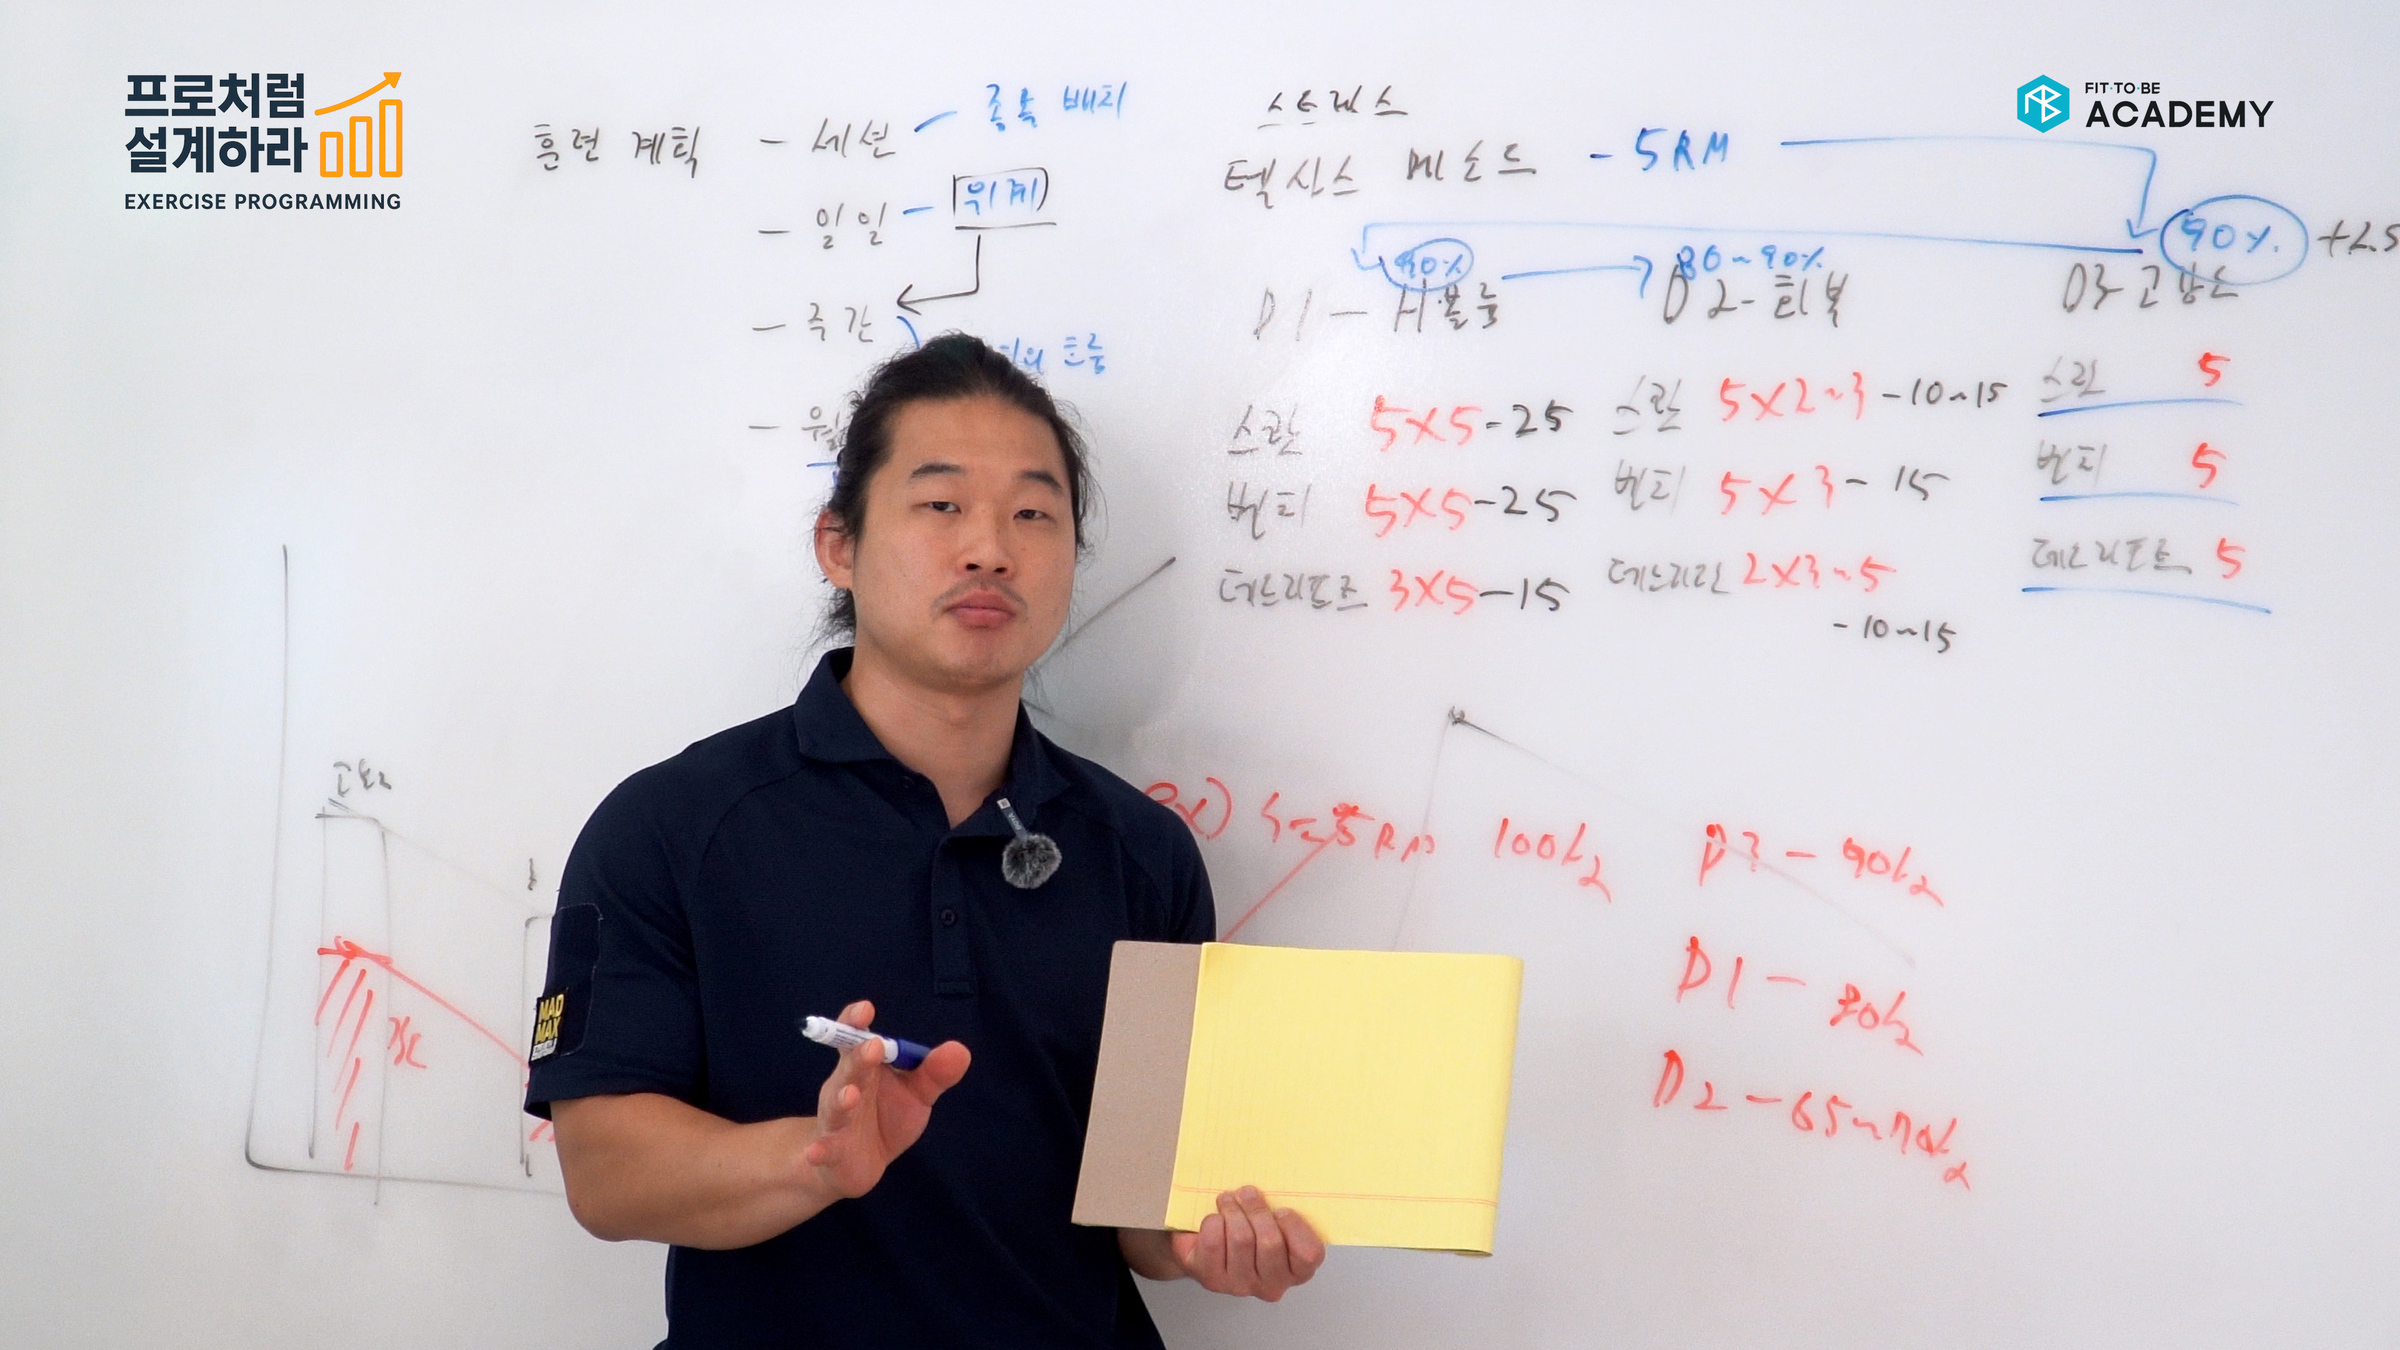 프로처럼
설계하라
EXERCISE PROGRAMMING
FIT·TO·BE
ACADEMY
훈련 계획 - 세션 - 종목 배치
- 일일 - 위계
- 주간
흐름
스트레스
텍사스 메소드 - 5RM
90% 80~90% 90%. +2.5
D1 - H볼륨 D2 - 회복 D3 고강도
스쿼 5×5-25 스쿼 5×2~3-10~15 스쿼 5
벤치 5×5-25 벤치 5×3-15 벤치 5
데드리프트 3×5-15 데드리프 2×3~5 데드리프트 5
-10~15
ex) S=5RM 100k D3 - 90k
D1 - 80k
D2 - 65~70k
MAD
MAX